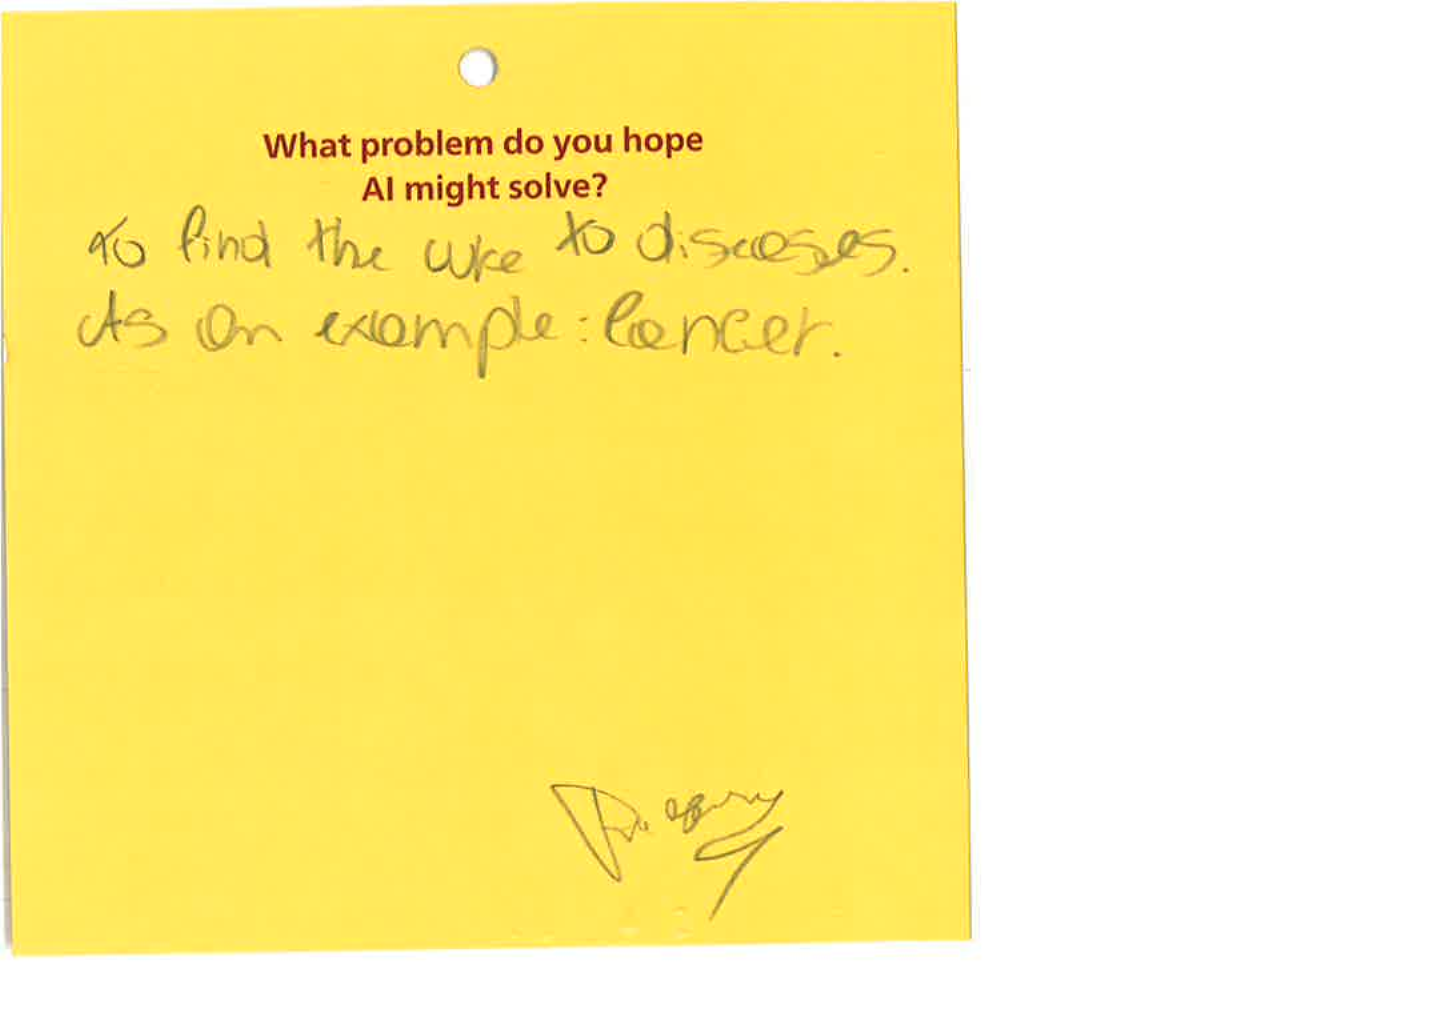 What problem do you hope
AI might solve?
To find the cure to diseases.
As an example: Cancer.